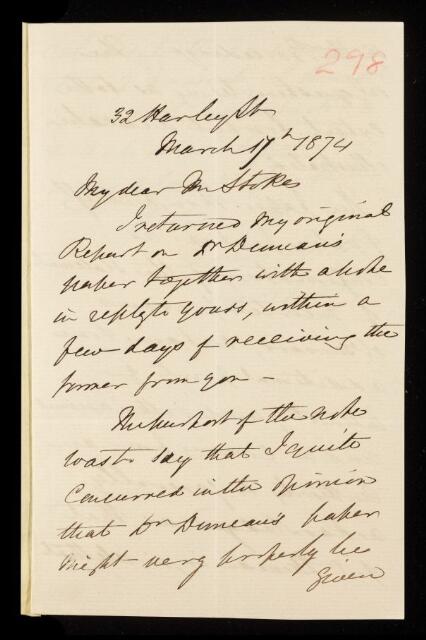 298
32 Harley St
March 17th 1874
My dear Mr Stokes
I returned my original
Report on Dr Duncan's
paper together with a note
in reply to yours, within a
few days of receiving the
former from you –
The purport of the note
was to say that I quite
concurred in the opinion
that Dr Duncan's paper
might very properly be
given